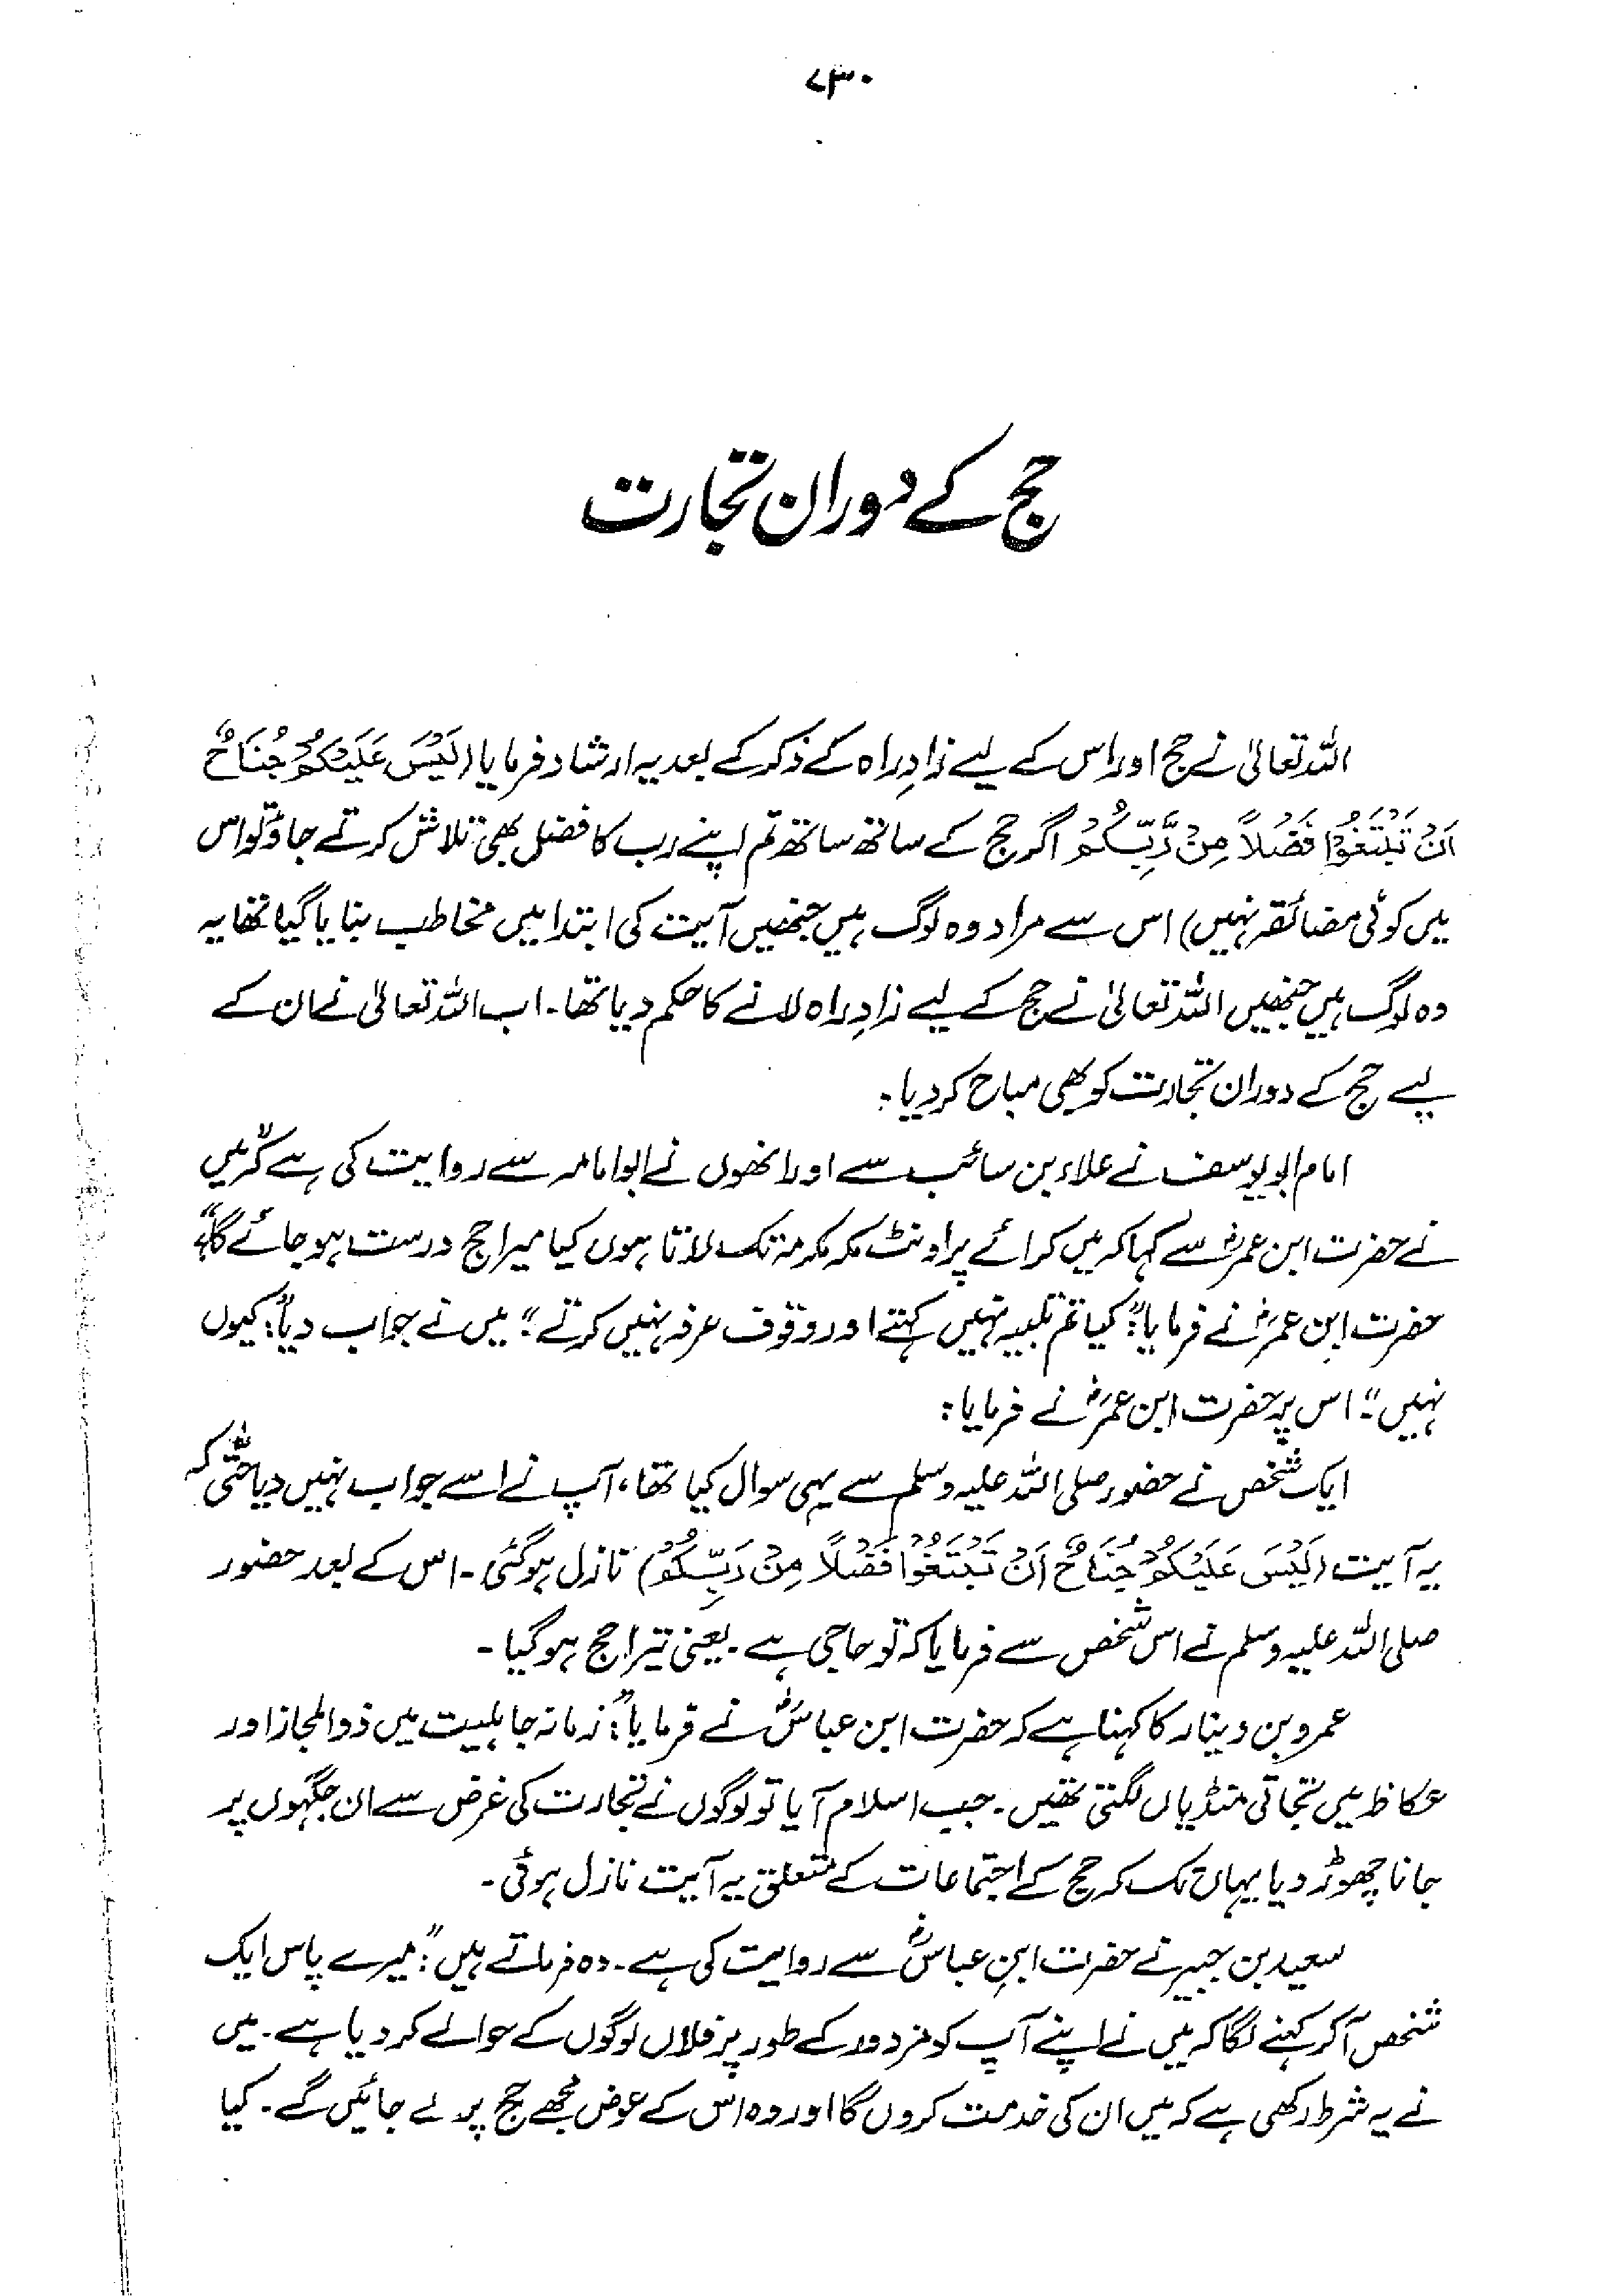 ۷۳۰
حج کے دوران تجارت
اللہ تعالیٰ نے حج اور اس کے لیے زادِ راہ کے ذکر کے بعد یہ ارشاد فرمایا (لَيْسَ عَلَيْكُمْ جُنَاحٌ
اَنْ تَبْتَغُوْا فَضْلًا مِنْ رَّبِّكُمْ اگر حج کے ساتھ ساتھ تم اپنے رب کا فضل بھی تلاش کرتے جاؤ تو اس
میں کوئی مضائقہ نہیں) اس سے مراد وہ لوگ ہیں جنھیں آیت کی ابتدا میں مخاطب بنایا گیا تھا یہ
وہ لوگ ہیں جنھیں اللہ تعالیٰ نے حج کے لیے زادِ راہ لانے کا حکم دیا تھا۔ اب اللہ تعالیٰ نے ان کے
لیے حج کے دوران تجارت کو بھی مباح کر دیا:
امام ابو یوسف نے علاء بن سائب سے اور انھوں نے ابو امامہ سے روایت کی ہے کہ "میں
نے حضرت ابن عمرؓ سے کہا کہ میں کرائے پر اونٹ مکہ مکرمہ تک لاتا ہوں کیا میرا حج درست ہو جائے گا؟"
حضرت ابن عمرؓ نے فرمایا: "کیا تم تلبیہ نہیں کہتے اور وقوف عرفہ نہیں کرتے" میں نے جواب دیا: "کیوں
نہیں"۔ اس پر حضرت ابن عمرؓ نے فرمایا:
ایک شخص نے حضور صلی اللہ علیہ وسلم سے یہی سوال کیا تھا، آپ نے اسے جواب نہیں دیا حتّٰی کہ
یہ آیت (لَيْسَ عَلَيْكُمْ جُنَاحٌ اَنْ تَبْتَغُوْا فَضْلًا مِنْ رَبِّكُمْ) نازل ہوگئی۔ اس کے بعد حضور
صلی اللہ علیہ وسلم نے اس شخص سے فرمایا کہ تو حاجی ہے۔ یعنی تیرا حج ہو گیا۔
عمرو بن دینار کا کہنا ہے کہ حضرت ابن عباسؓ نے فرمایا: "زمانہ جاہلیت میں ذوالمجاز اور
عکاظ میں تجاتی منڈیاں لگتی تھیں۔ جب اسلام آیا تو لوگوں نے تجارت کی غرض سے ان جگہوں پر
جانا چھوڑ دیا یہاں تک کہ حج کے اجتماعات کے متعلق یہ آیت نازل ہوئی۔
سعید بن جبیر نے حضرت ابنِ عباسؓ سے روایت کی ہے۔ وہ فرماتے ہیں: "میرے پاس ایک
شخص آ کر کہنے لگا کہ میں نے اپنے آپ کو مزدور کے طور پر فلاں لوگوں کے حوالے کر دیا ہے۔ میں
نے یہ شرط رکھی ہے کہ میں ان کی خدمت کروں گا اور وہ اس کے عوض مجھے حج پر لے جائیں گے۔ کیا